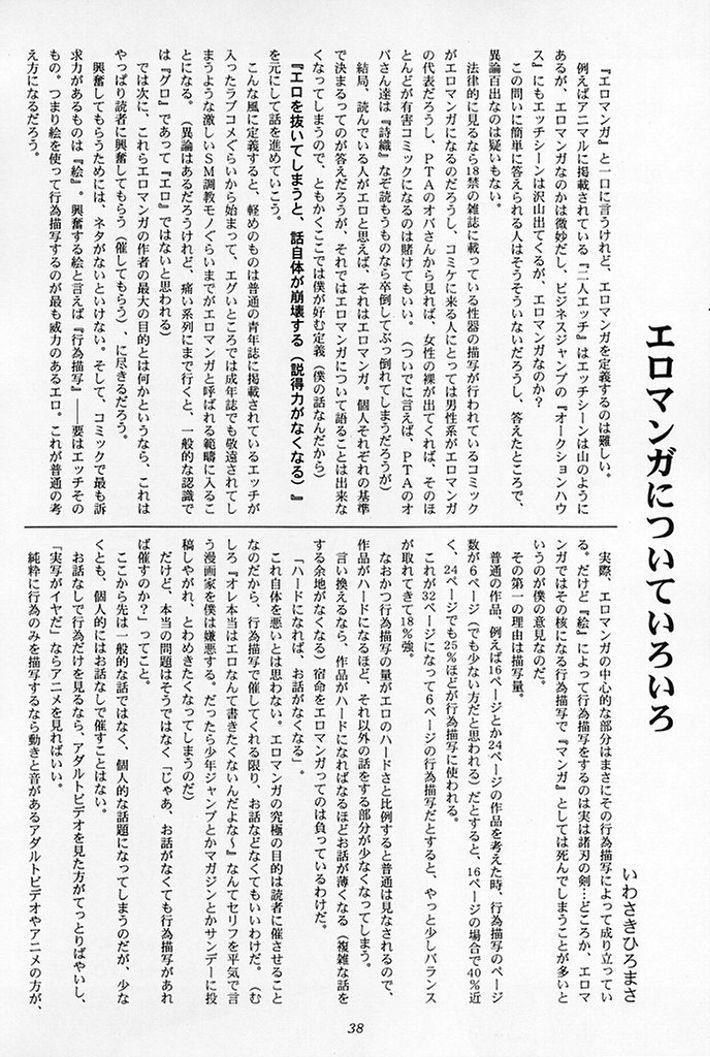 エロマンガについていろいろ
いわさきひろまさ
『エロマンガ』と一口に言うけれど、エロマンガを定義するのは難しい。
例えばアニマルに掲載されている『二人エッチ』はエッチシーンは山のように
あるが、エロマンガなのかは微妙だし、ビジネスジャンプの『オークションハウ
ス』にもエッチシーンは沢山出てくるが、エロマンガなのか？
この問いに簡単に答えられる人はそうそういないだろうし、答えたところで、
異論百出なのは疑いもない。
法律的に見るなら18禁の雑誌に載っている性器の描写が行われているコミック
がエロマンガになるのだろうし、コミケに来る人にとっては男性系がエロマンガ
の代表だろうし、ＰＴＡのオバさんから見れば、女性の裸が出てくれば、そのほ
とんどが有害コミックになるのは賭けてもいい。（ついでに言えば、ＰＴＡのオ
バさん達は『詩織』なぞ読もうものなら卒倒してぶっ倒れてしまうだろうが）
結局、読んでいる人がエロと思えば、それはエロマンガ。個人それぞれの基準
で決まるってのが答えだろうが、それではエロマンガについて語ることは出来な
くなってしまうので、ともかくここでは僕が好む定義（僕の話なんだから）
『エロを抜いてしまうと、話自体が崩壊する（説得力がなくなる）』
を元にして話を進めていこう。
こんな風に定義すると、軽めのものは普通の青年誌に掲載されているエッチが
入ったラブコメぐらいから始まって、エグいところでは成年誌でも敬遠されてし
まうような激しいＳＭ調教モノぐらいまでがエロマンガと呼ばれる範疇に入るこ
とになる。（異論はあるだろうけれど、痛い系列にまで行くと、一般的な認識で
は『グロ』であって『エロ』ではないと思われる）
では次に、これらエロマンガの作者の最大の目的とは何かというなら、これは
やっぱり読者に興奮してもらう（催してもらう）、に尽きるだろう。
興奮してもらうためには、ネタがないといけない。そして、コミックで最も訴
求力があるものは『絵』。興奮する絵と言えば『行為描写』――要はエッチその
もの。つまり絵を使って行為描写するのが最も威力のあるエロ。これが普通の考
え方になるだろう。
実際、エロマンガの中心的な部分はまさにその行為描写によって成り立ってい
る。だけど『絵』によって行為描写をするのは実は諸刃の剣…どころか、エロマ
ンガではその核になる行為描写で『マンガ』としては死んでしまうことが多いと
いうのが僕の意見なのだ。
その第一の理由は描写量。
普通の作品、例えば16ページとか24ページの作品を考えた時、行為描写のページ
数が６ページ（でも少ない方だと思われる）だとすると、16ページの場合で40％近
く、24ページでも25％ほどが行為描写に使われる。
これが32ページになって６ページの行為描写だとすると、やっと少しバランス
が取れてきて18％強。
なおかつ行為描写の量がエロのハードさと比例すると普通は見なされるので、
作品がハードになるほど、それ以外の話をする部分が少なくなってしまう。
言い換えるなら、作品がハードになればなるほどお話が薄くなる（複雑な話を
する余地がなくなる）宿命をエロマンガってのは負っているわけだ。
「ハードになれば、お話がなくなる」。
これ自体を悪いとは思わない。エロマンガの究極の目的は読者に催させること
なのだから、行為描写で催してくれる限り、お話などなくてもいいわけだ。（む
しろ『オレ本当はエロなんて書きたくないんだよな～』なんてセリフを平気で言
う漫画家を僕は嫌悪する。だったら少年ジャンプとかマガジンとかサンデーに投
稿しやがれ、とわめきたくなってしまうのだ）
だけど、本当の問題はそうではなく、「じゃあ、お話がなくても行為描写があれ
ば催すのか？」ってこと。
ここから先は一般的な話ではなく、個人的な話題になってしまうのだが、少な
くとも、個人的にはお話なしで催すことはない。
お話なしで行為だけを見るなら、アダルトビデオを見た方がてっとりばやいし、
「実写がイヤだ」ならアニメを見ればいい。
純粋に行為のみを描写するなら動きと音があるアダルトビデオやアニメの方が、
38